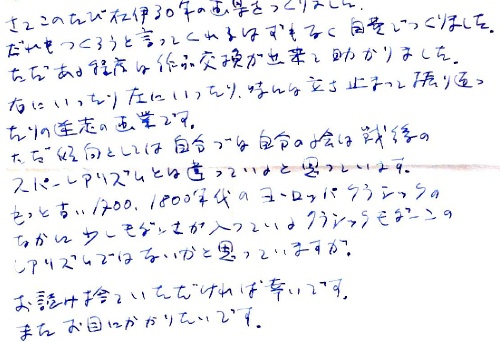 さてこのたび在伊30年の画集をつくりました。
だれもつくろうと言ってくれるはずもなく自費でつくりました。
ただある程度は作品交換が出来て助かりました。
右にいったり左にいったり、時には立ち止まって振り返っ
たりの迷走の画業です。
ただ傾向としては自分では自分の絵は戦後の
スーパーレアリズムとは違っていると思っています。
もっと古い1700、1800年代のヨーロッパクラシックの
なかに少しモダンさが入っているクラシックモダーンの
レアリズムではないかと思っていますが。
お読み捨ていただければ幸いです。
またお目にかかりたいです。